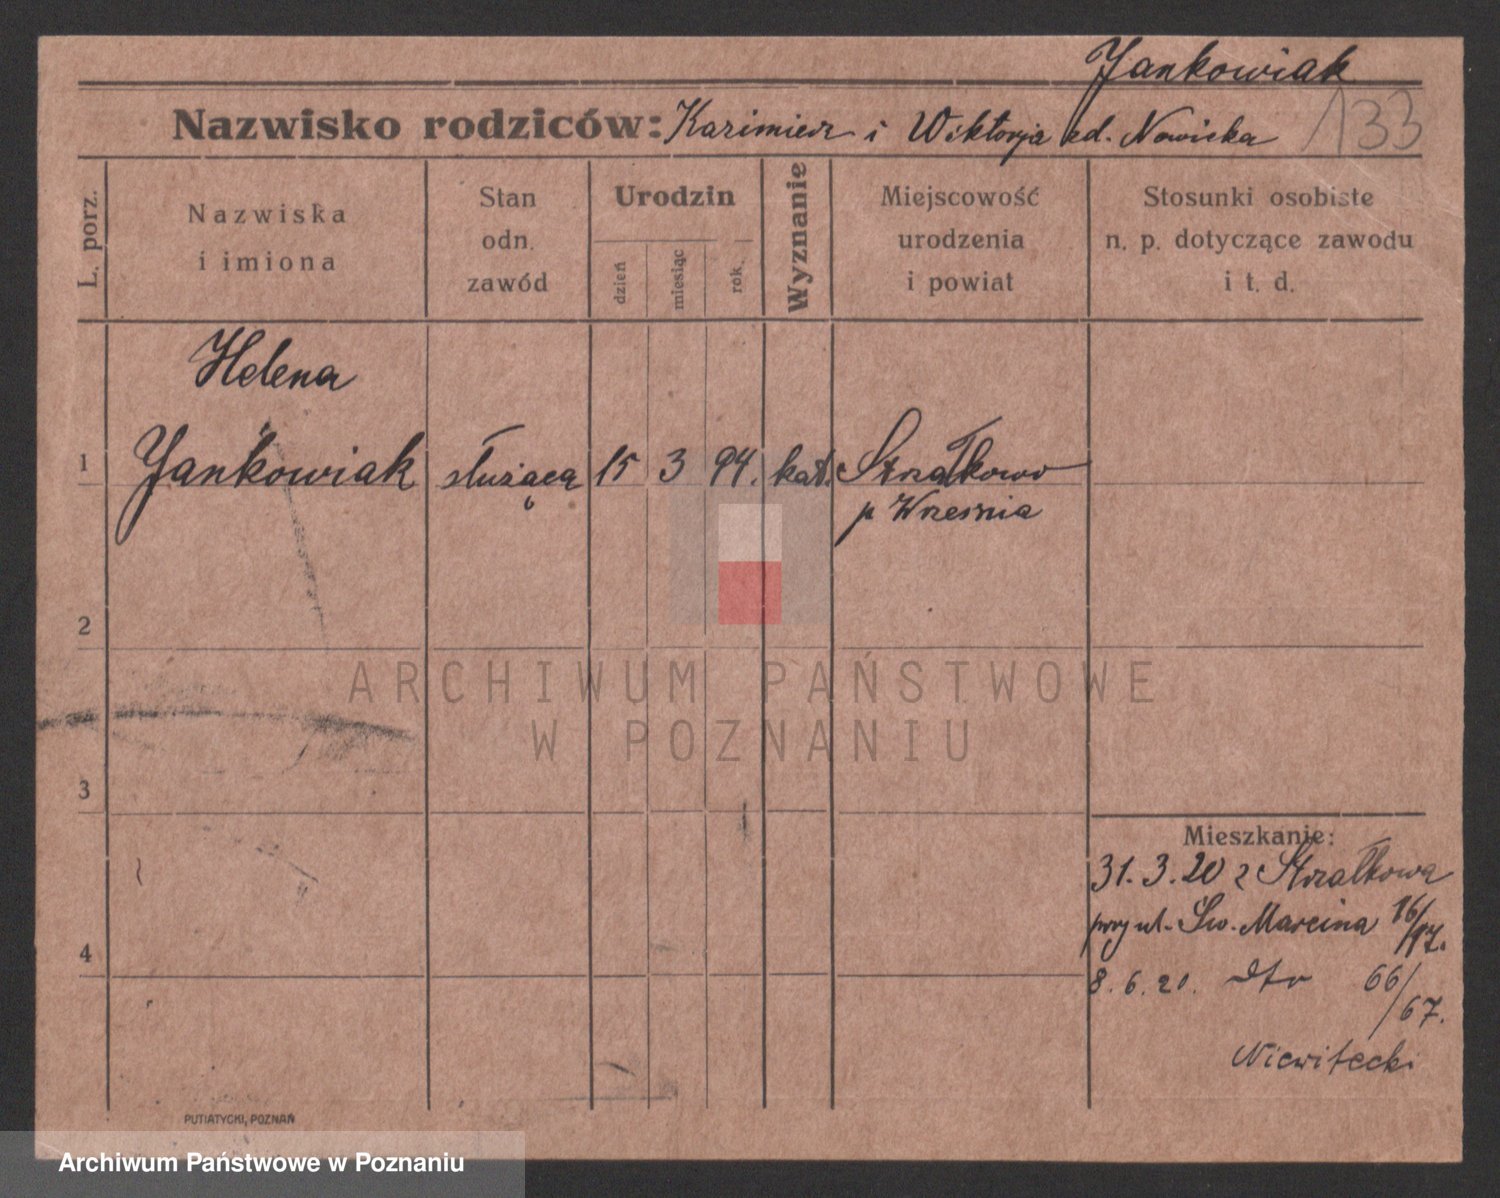 Jankowiak
Nazwisko rodziców: Kazimierz i Wiktorja zd. Nowicka 133
L. porz.
Nazwiska
i imiona
Stan
odn.
zawód
Urodzin
dzień
miesiąc
rok.
Wyznanie
Miejscowość
urodzenia
i powiat
Stosunki osobiste
n. p. dotyczące zawodu
i t. d.
Helena
1 Jankowiak służąca 15 3 94. kat. Strzałkowo
p Września
2
ARCHIWUM PAŃSTWOWE
W POZNANIU
3
Mieszkanie:
31.3.20 z Strzałkowa
przy ul. Św. Marcina 16/17.
4
8.6.20. dto 66/67.
Niewitecki
PUTIATYCKI, POZNAŃ
Archiwum Państwowe w Poznaniu